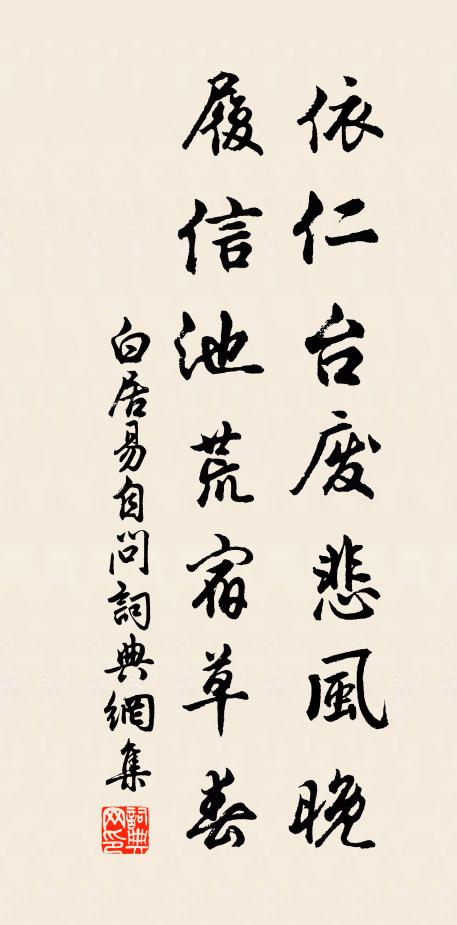 依仁台废悲風晚
履信池荒宿草春
白居易自问詞典網集
詞典
网印